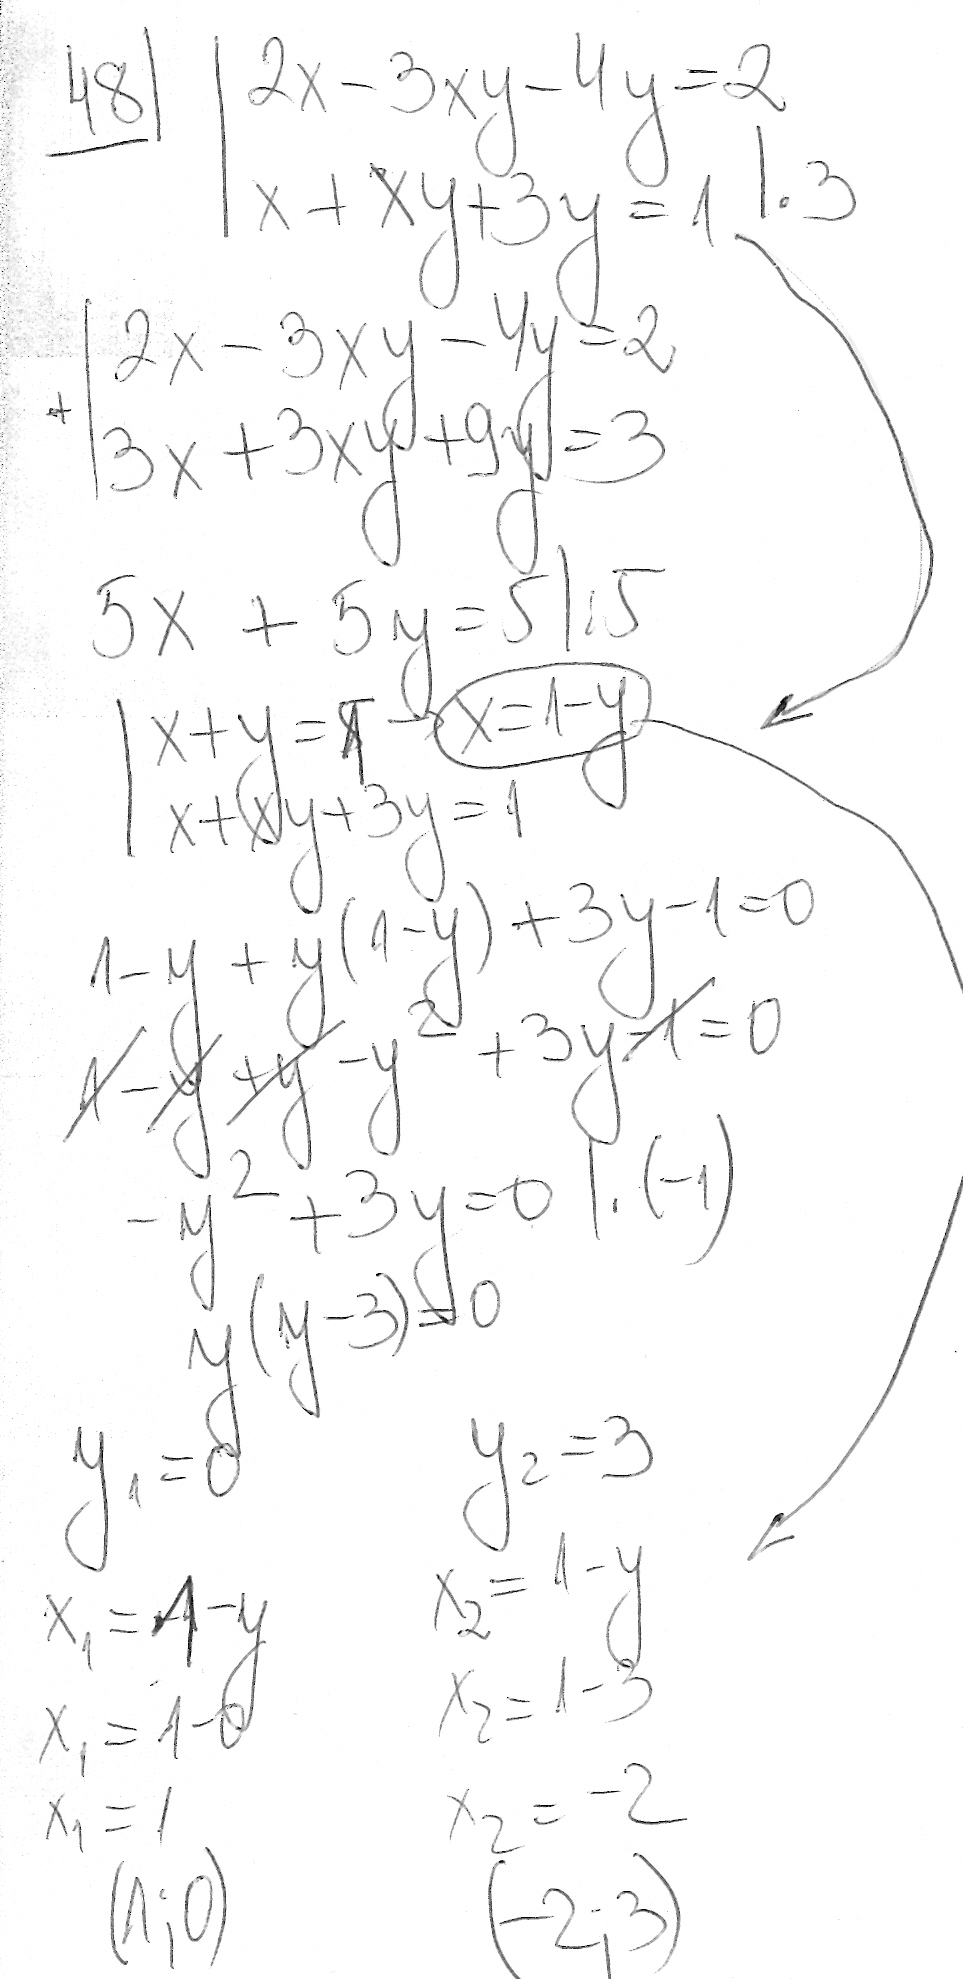 48| | 2x-3xy-4y=2
| x+xy+3y=1 |.3
| 2x-3xy-4y=2
+ | 3x+3xy+9y=3
5x + 5y=5 |:5
| x+y=1 → x=1-y
| x+xy+3y=1
1-y+y(1-y)+3y-1=0
1-y+y-y²+3y-1=0
-y²+3y=0 |.(-1)
y(y-3)=0
y₁=0 y₂=3
x₁=1-y x₂=1-y
x₁=1-0 x₂=1-3
x₁=1 x₂=-2
(1;0) (-2;3)